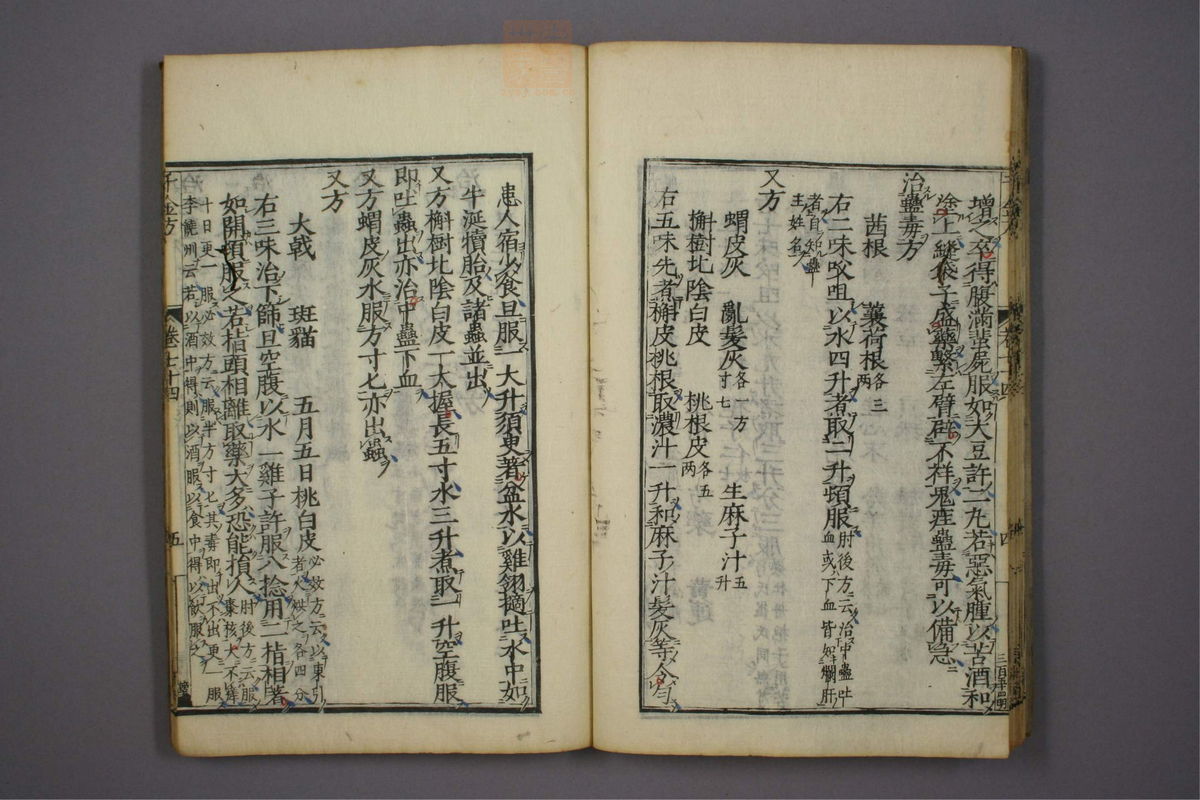 增之卒得腹滿蜚屍服如大豆許二丸若惡氣腫以苦酒和
塗上縫袋子盛藥繫左臂辟不祥鬼疰蠱毒可以備急
治蠱毒方
茜根 蘘荷根各三兩
右二味㕮咀以水四升煮取二升頓服肘後方云治中蠱吐血或下血皆如爛肝者自知蠱主姓名
又方
蝟皮灰 亂髮灰各一方寸七 生麻子汁五升
槲樹北陰白皮 桃根皮各五兩
右五味先煮槲皮桃根取濃汁一升和麻子汁髮灰等令勻
患人宿少食旦服一大升須臾著盆水以雞翎擿吐水中如
牛涎犢胎及諸蟲並出
又方槲樹北陰白皮一大握長五寸水三升煮取一升空腹服
即吐蟲出亦治中蠱下血
又方蝟皮灰水服方寸七亦出蟲
又方
大戟 斑貓 五月五日桃白皮必效方云以東引者火烘之各四分
右三味治下篩旦空腹以水一雞子許服八捻用二指相著
如開頓服之若指頭相離取藥大多恐能損人肘後方云服棗核大不瘥
十日更一服必效方云服半方寸七其毒即出不出更一服
李饒州云若以酒中得則以酒服以食中得以飲服之
千金方
卷七十四
五